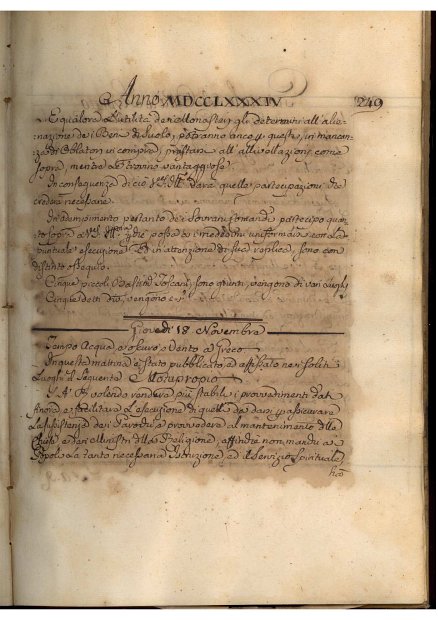 Anno MDCCLXXXIV 249
E qualora l'utilità dei Monasteri gli determini all'alie-
nazione dei Beni di Suolo, potranno anco questi, in mancan-
za di Oblatori in compra, prestare all'allivellazioni come
sopra, mentre le trovino vantaggiose.
In conseguenza di ciò darà quelle partecipazioni che
crederà necessarie.
In adempimento pertanto dei Sovrani Comandi partecipo quan-
to sopra a possa ed i medesimi uniformarsi con la
puntuale esecuzione. Ed in attenzione di sua replica, sono con
distinto ossequio.
Cinque piccoli Bastim. Toscani, sono giunti, vengono di vari luoghi
Cinque detti
Giovedì 18 Novembre
Tempo Acqua, e oscuro, e Vento a Greco.
In questa mattina è stato pubblicato, ed affissato nei soliti
Luoghi il Seguente Motuproprio
S. A. R. volendo rendere più stabili i provvedimenti dati
finora e facilitare la esecuzione di quelli da darsi p. assicurare
la sussistenza dei Parrochi, e provvedere al mantenimento delle
Chiese e dei Ministri della Religione, affinchè non manchi a
Popoli la tanto necessaria Istruzione, ed il Servizio Spirituale,